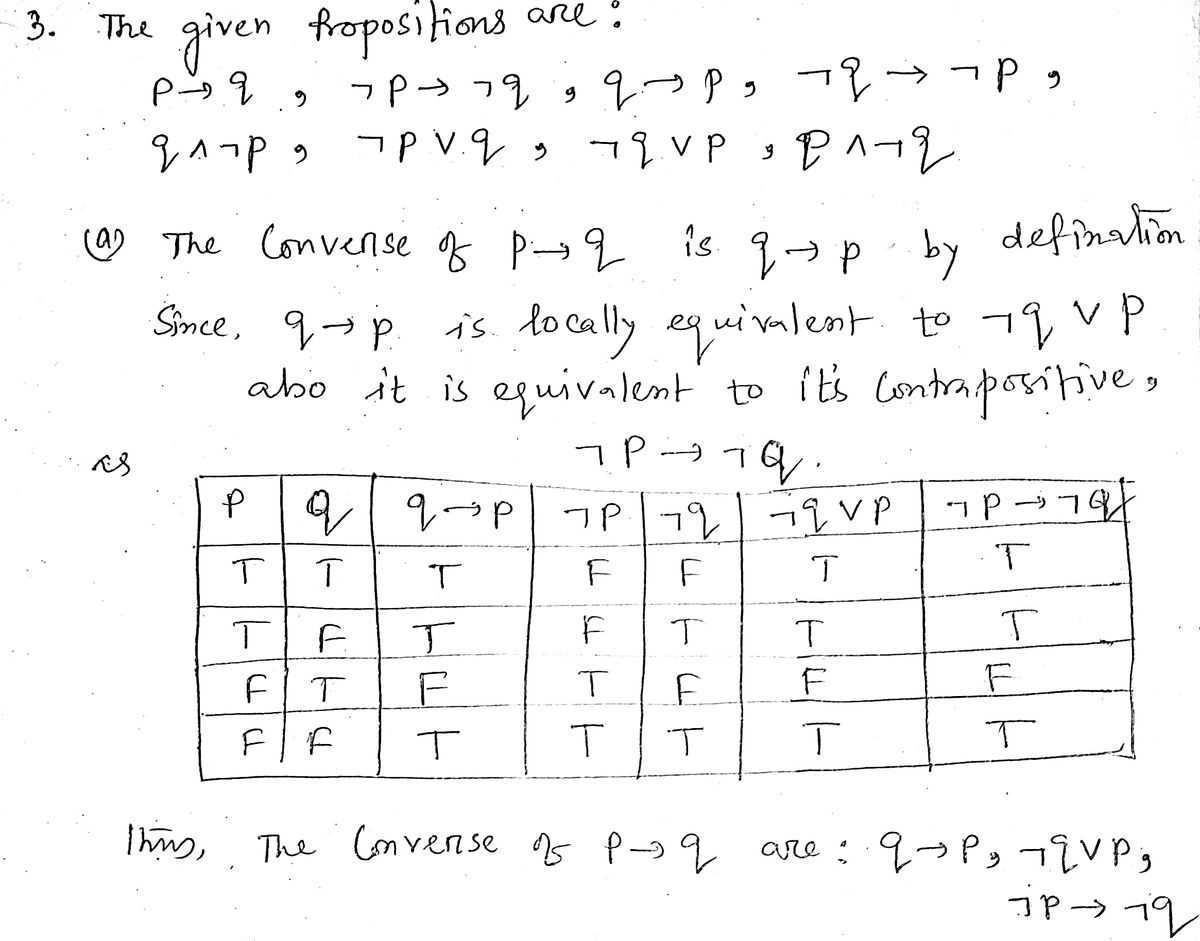 3. The given propositions are :
p→q , ¬p→¬q , q→p , ¬q→¬p ,
q∧¬p , ¬p∨q , ¬q∨p , p∧¬q
(a) The Converse of p→q is q→p by defination
Since, q→p is locally equivalent to ¬q∨p
also it is equivalent to it's Contrapositive ,
¬p→¬q.
as
P Q q→p ¬P ¬q ¬q∨P ¬P→¬Q
T T T F F T T
T F T F T T T
F T F T F F F
F F T T T T T
Thus, The Converse of p→q are : q→p, ¬q∨p,
¬p→¬q